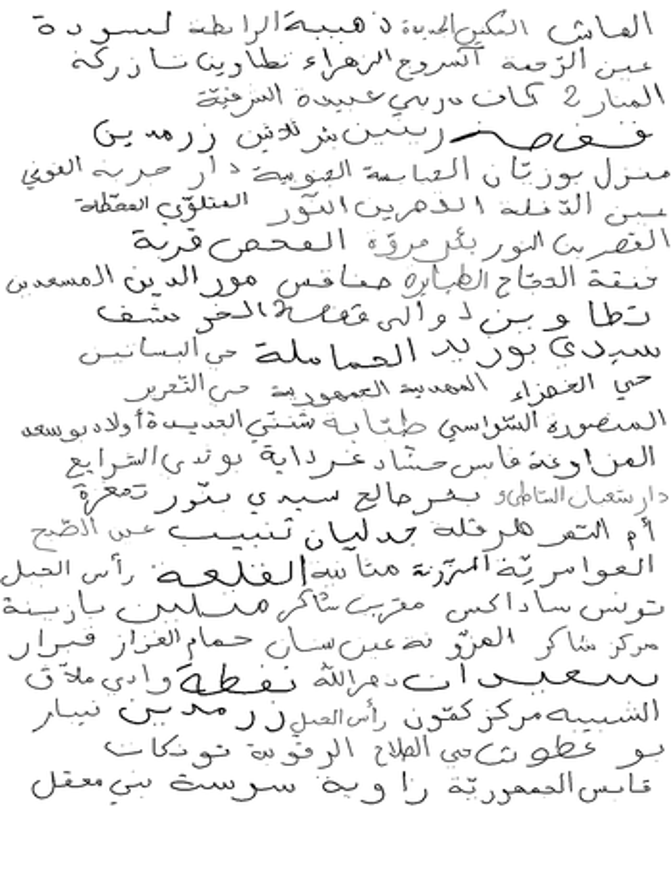 العاش التكين الجديدة ذهيبة الرابطة لسودة
عين الرحمة السروج الزهراء تطاوين تازركة
المنار 2 كاف دربي عبيدة الشرقية
قفصة رينين شرثلاثين زرمدين
منزل بوزيّان العباسة الجنوبية دار حربة الغوني
عين الدّفلة الدهرين النّور المتلوّي المحطة
القصر بن النور بئر مروّة الفحص قربة
خنقة الحجّاج الطبابرة صفاقس مور الدين المسعدين
تطاوين لوالى قفصة 2 الحرشف
سيدي بوزيد الحماملة حي البساتين
حي الخضراء المهدية الجمهورية حي التحرير
المنصورة السّواسي طبّابة شنّني الجديدة أولاد بوسعد
المزاوغة فاس حشّاد غرداية بوندي الشرايع
دار شعبان الشاطئ بشر صالح سيدي بنّور تمغزة
أم التمر هرقلة جدليان تنبيب عين الصّبح
العوامريّة المزرّنة متاتية القلعة رأس الجبل
تونس ساداكس مقرب شاكر منبلين باردينة
مركز شاكر المزّونة عين سنان حمام الغزاز فبرار
سعيدان دهر اللّه نفطة وادي ملاّق
الشبيبة مركز كمّون رأس الجبل زرمدين نيبار
بو عطوش حي الفلاح الرقوبة توتكات
قابس الجمهوريّة زاوية سوسة بني معقل